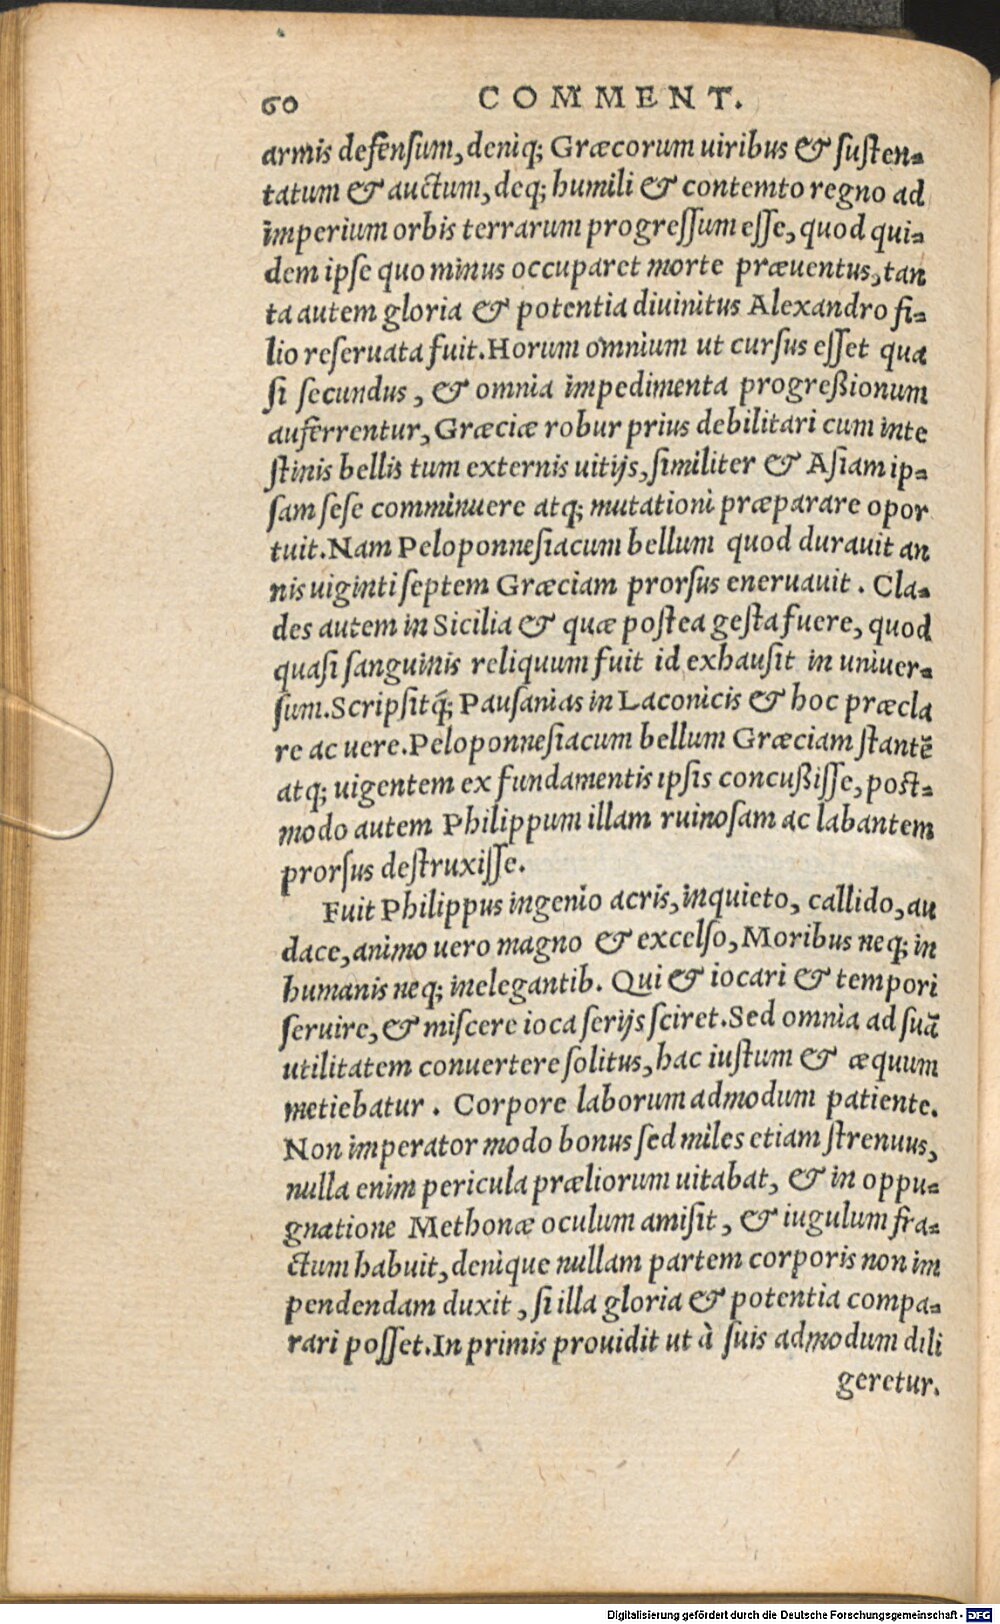 60 COMMENT.
armis defensum, deniq; Græcorum uiribus & susten-
tatum & auctum, deq; humili & contemto regno ad
imperium orbis terrarum progressum esse, quod qui-
dem ipse quo minus occuparet morte præuentus, tan
ta autem gloria & potentia diuinitus Alexandro fi-
lio reseruata fuit. Horum omnium ut cursus esset qua
si secundus, & omnia impedimenta progreßionum
auferrentur, Græciæ robur prius debilitari cum inte
stinis bellis tum externis uitijs, similiter & Asiam ip-
sam sese comminuere atq; mutationi præparare opor
tuit. Nam Peloponnesiacum bellum quod durauit an
nis uiginti septem Græciam prorsus eneruauit. Cla-
des autem in Sicilia & quæ postea gesta fuere, quod
quasi sanguinis reliquum fuit id exhausit in uniuer-
sum. Scripsitq́; Pausanias in Laconicis & hoc præcla
re ac uere. Peloponnesiacum bellum Græciam stantẽ
atq; uigentem ex fundamentis ipsis concußisse, post-
modo autem Philippum illam ruinosam ac labantem
prorsus destruxisse.
Fuit Philippus ingenio acris, inquieto, callido, au
dace, animo uero magno & excelso, Moribus neq; in
humanis neq; inelegantib. Qui & iocari & tempori
seruire, & miscere ioca serijs sciret. Sed omnia ad suã
utilitatem conuertere solitus, hac iustum & æquum
metiebatur. Corpore laborum admodum patiente.
Non imperator modo bonus sed miles etiam strenuus,
nulla enim pericula præliorum uitabat, & in oppu-
gnatione Methonæ oculum amisit, & iugulum fra-
ctum habuit, denique nullam partem corporis non im
pendendam duxit, si illa gloria & potentia compa-
rari posset. In primis prouidit ut à suis admodum dili
geretur.
Digitalisierung gefördert durch die Deutsche Forschungsgemeinschaft - DFG